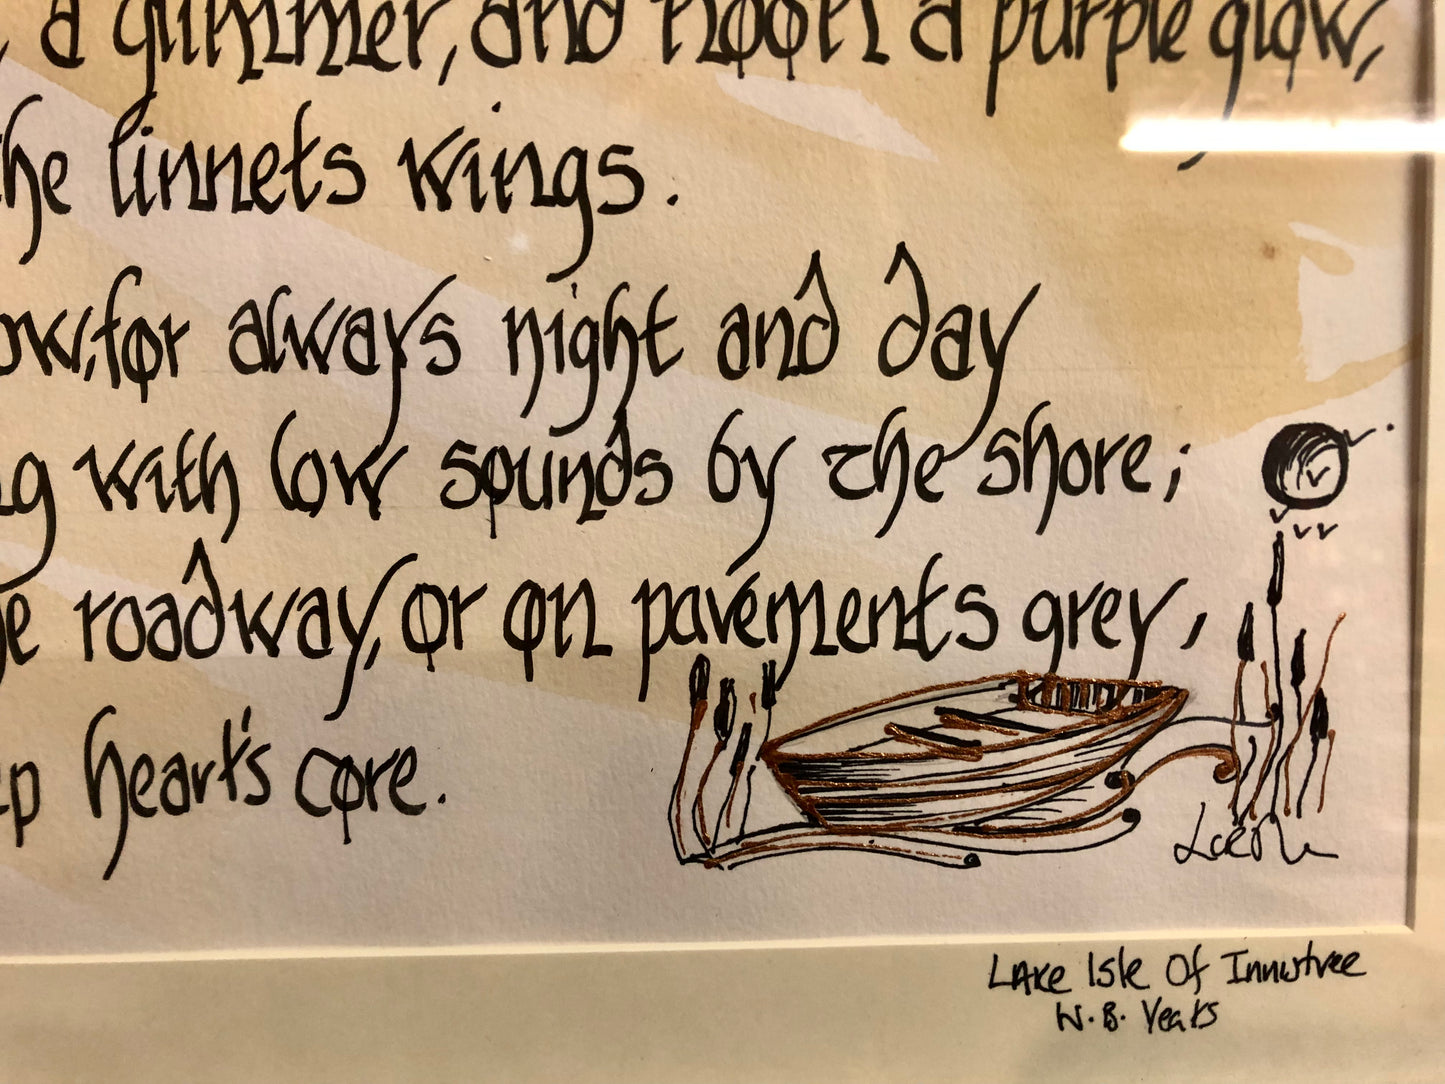 a glimmer, and noon a purple glow,
the linnets wings.
ow, for always night and day
ng with low sounds by the shore;
he roadway, or on pavements grey,
ep heart's core.
Lake Isle Of Innisfree
W.B. Yeats